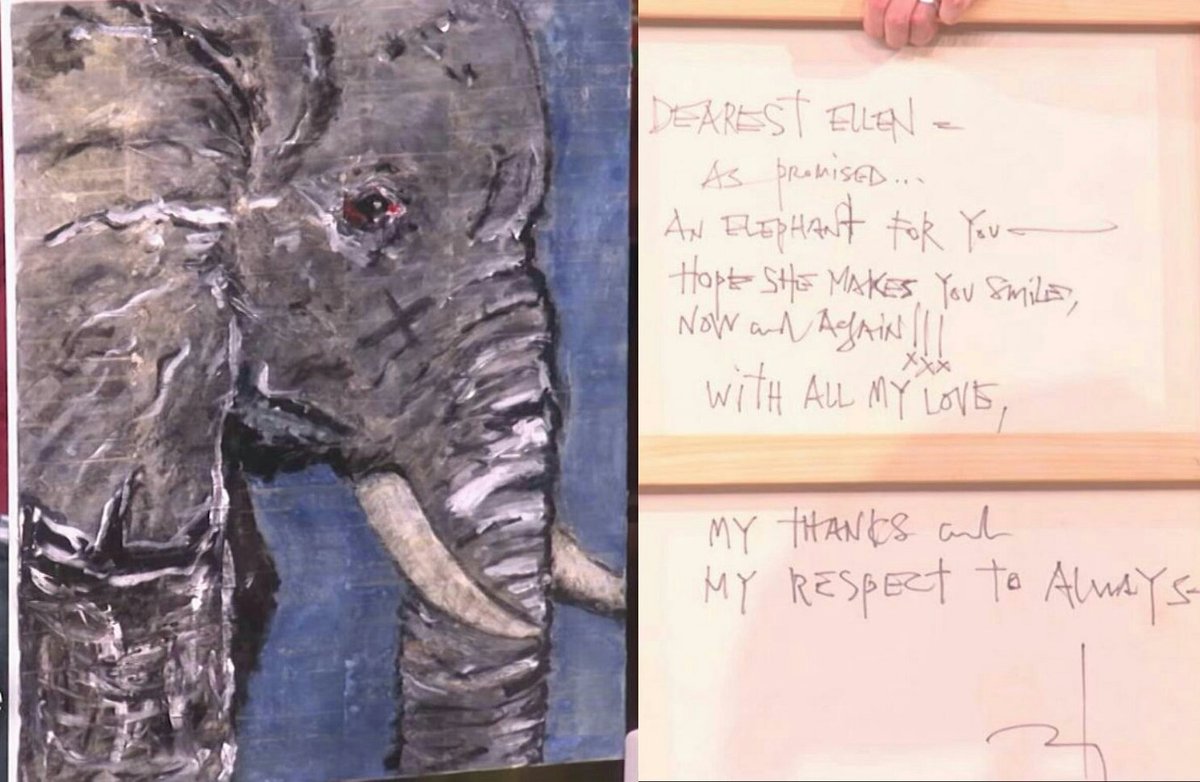 DEAREST ELLEN -
AS promisED...
AN ELEPHANT FOR YOU
HOPE SHE MAKES YOU SMILE,
NOW and AgAiN!!!
xxx
WITH ALL MY LOVE,
MY THANKS and
MY RESPECT TO ALWAYS-